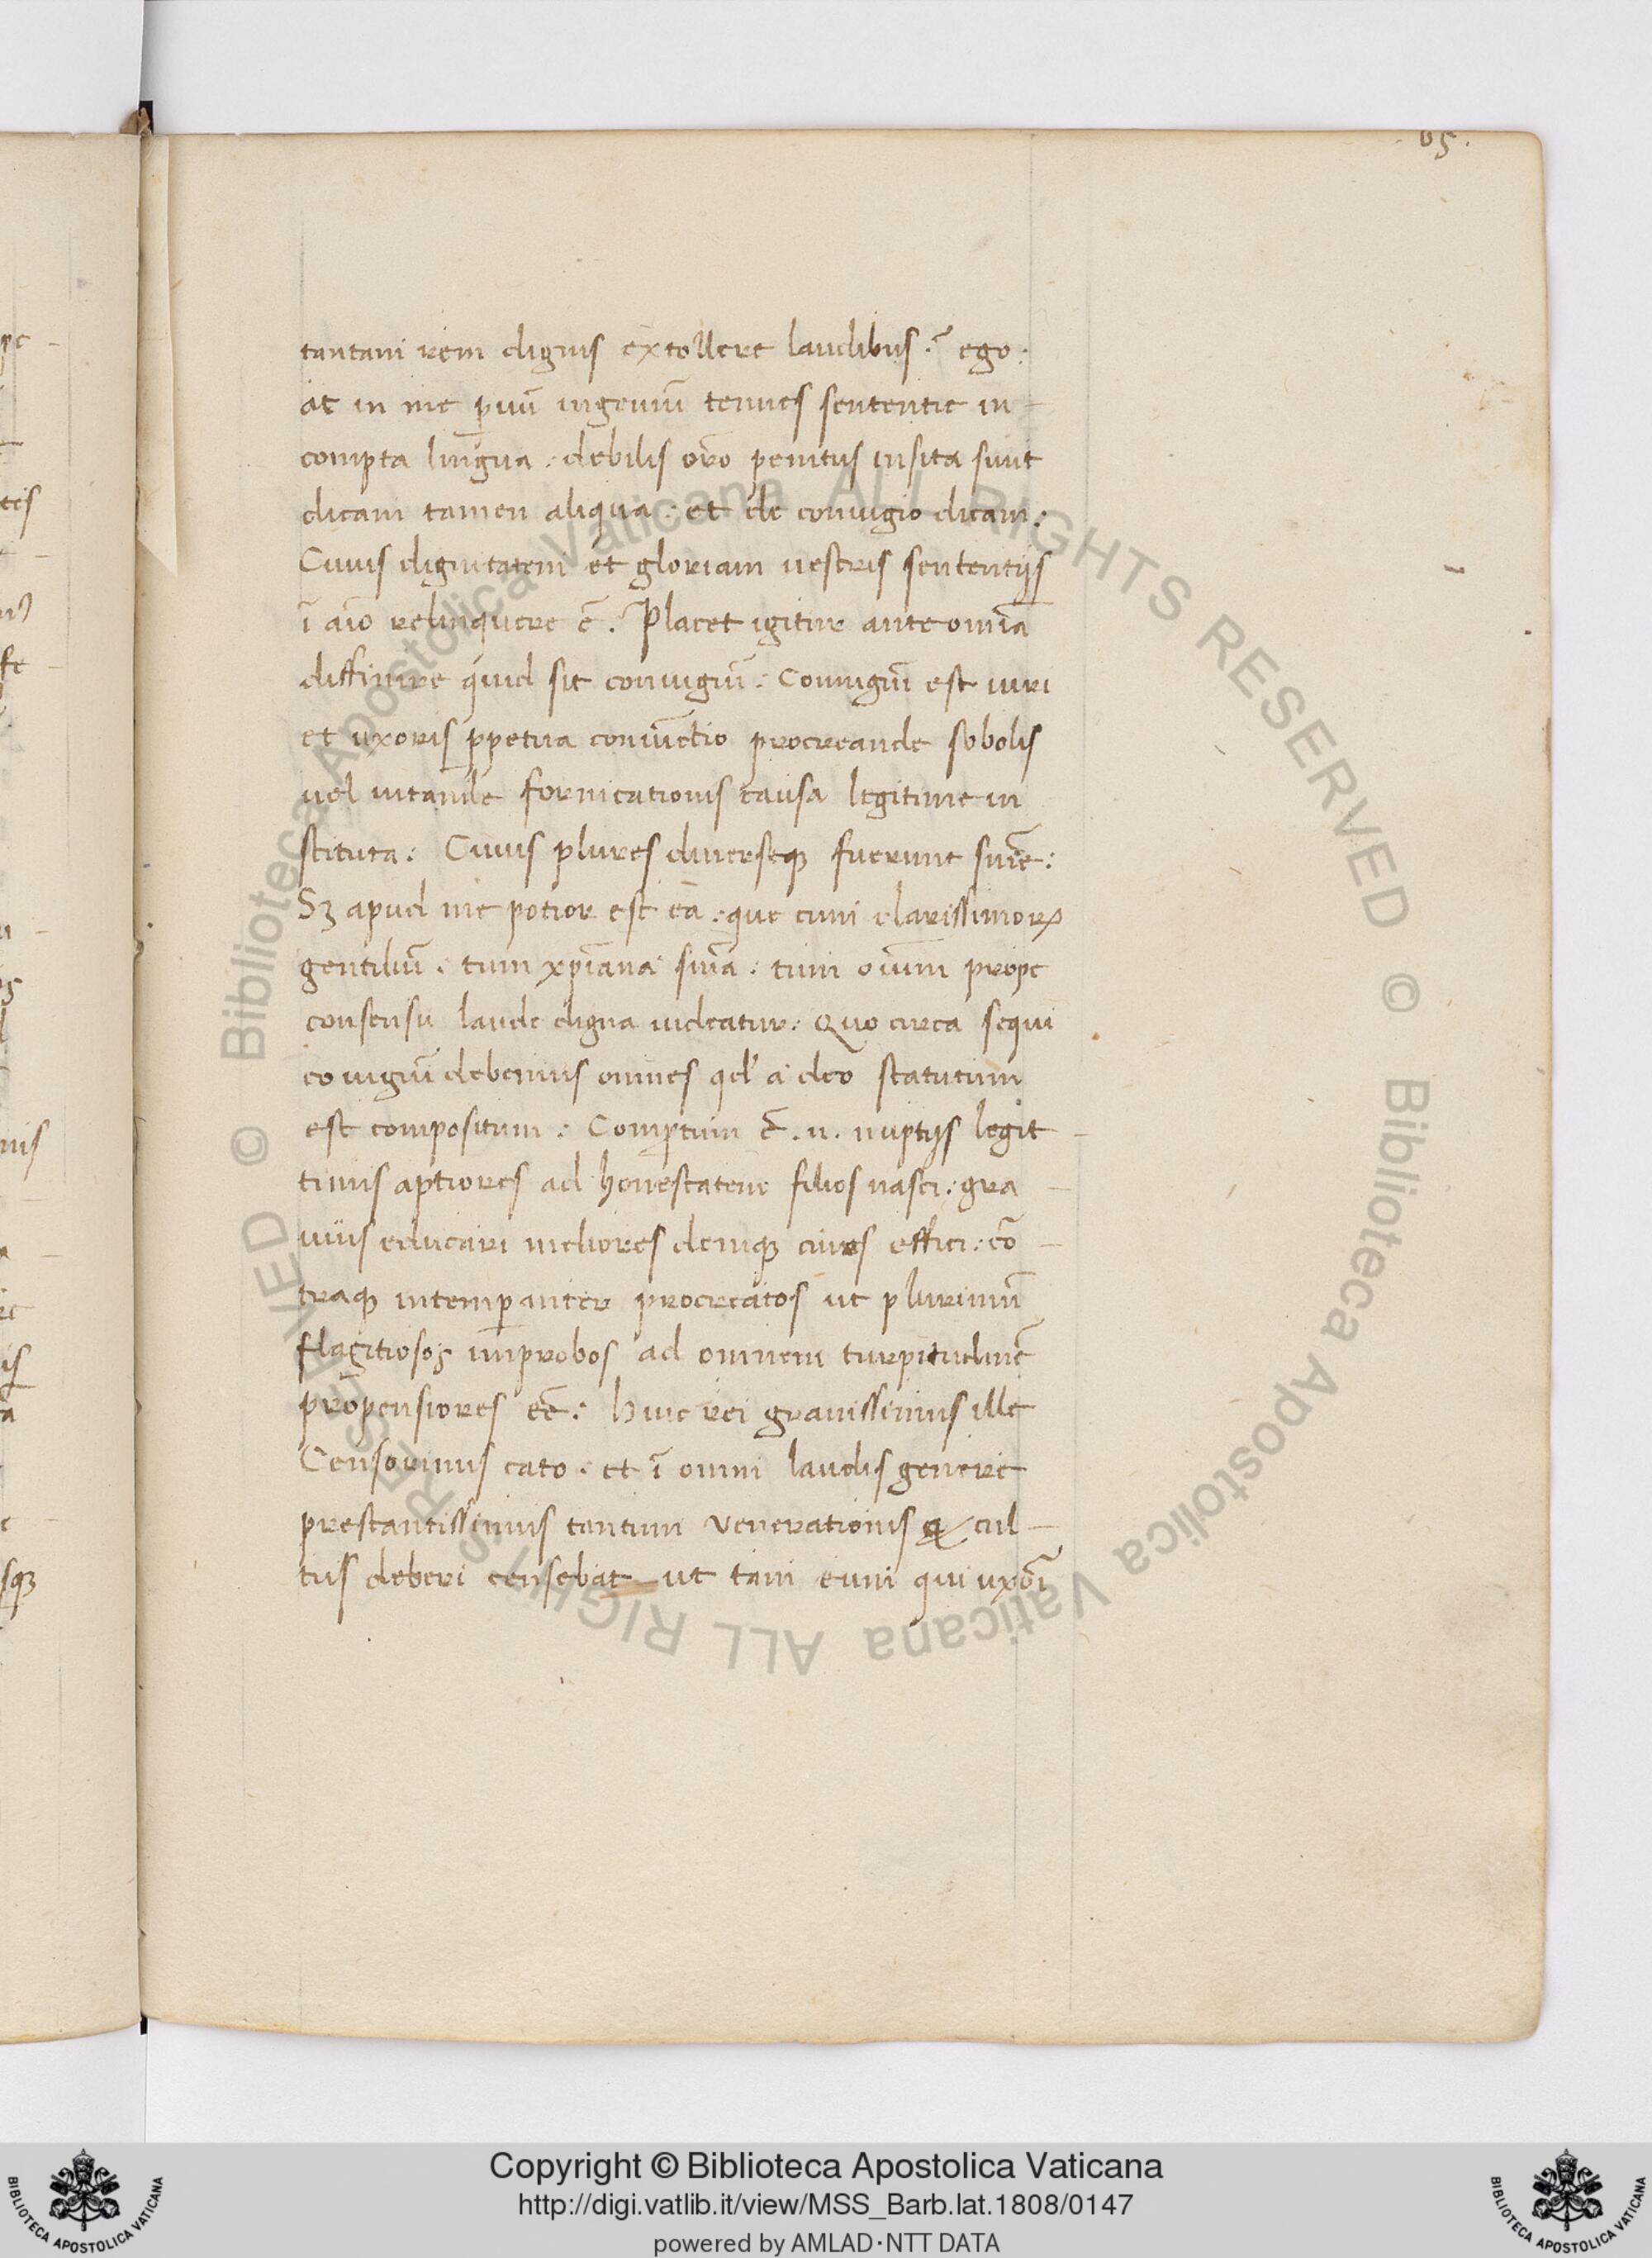 65.
tantam rem dignis extollere laudibus? ego:
at in me p̲uū ingeniū tenues sententie in-
compta lingua: debilis or̄o penitus insita sunt
dicam tamen aliqua: et de coniugio dicam:
Cuius dignitatem et gloriam uestris sententijs
ī aīo relinquere ē. Placet igitur ante omīa
diffinire quid sit coniugiū: Coniugiū est uiri
et uxoris p̲petua coniūctio procreande sobolis
uel uitande fornicationis causa legitime in
stituta: Cuius plures diuerseqꝫ fuerunt sn̄ie:
Sꝫ apud me potior est ea: que cum clarissimoꝝ
gentiliū: tum xp̄iana sn̄ia: tum oīum prope
consensu laude digna uideatur: Quo circa sequi
coniugiū debemus omnes qd' a deo statutum
est compositum: Comp̲tum ē.n. nuptijs legit-
timis aptiores ad honestatem filios nasci: gra-
uius educari meliores deniqꝫ ciues effici: cō-
traqꝫ intemp̲anter procreatos ut plurimū
flagitiosos improbos ad omnem turpitudinē
propensiores eē: Huic rei grauissimus ille
Censorinus cato: et ī omni laudis genere
prestantissimus tantum venerationis & cul-
tus deberi censebat ut tam eum qui uxōi
Copyright © Biblioteca Apostolica Vaticana
http://digi.vatlib.it/view/MSS_Barb.lat.1808/0147
powered by AMLAD·NTT DATA
BIBLIOTECA APOSTOLICA VATICANA
BIBLIOTECA APOSTOLICA VATICANA
© Biblioteca Apostolica Vaticana ALL RIGHTS RESERVED © Biblioteca Apostolica Vaticana ALL RIGHTS RESERVED